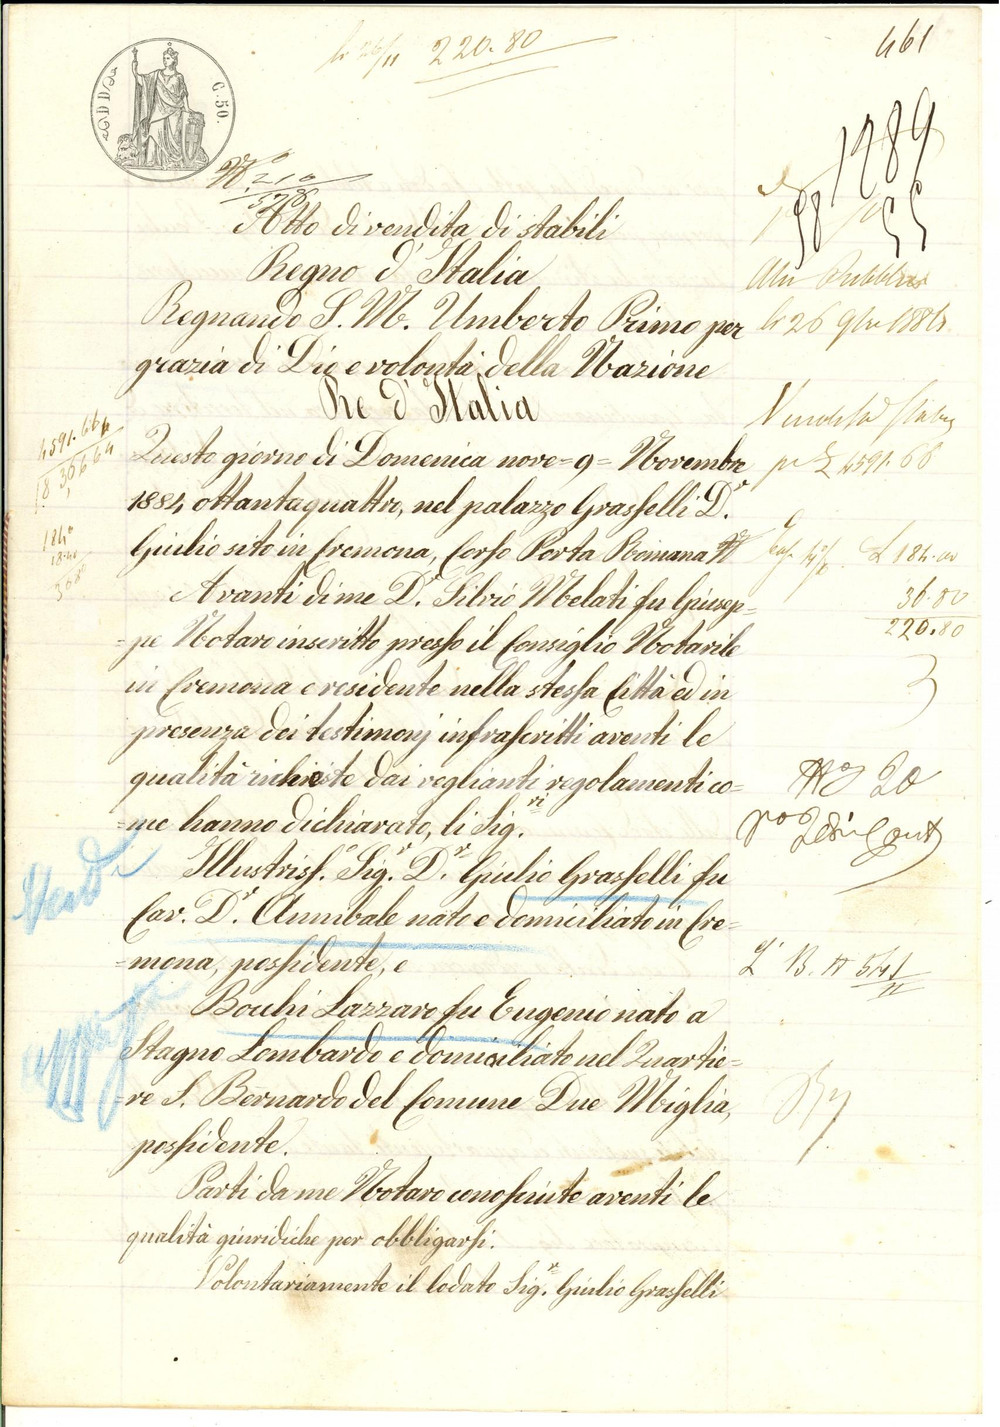 461
li 26/11 220.80
C. 50.
1789
N.° 210
5786
98 55
Atto di vendita di stabili
Regno d'Italia
Atti Pubblici
Regnando S. M. Umberto Primo per
li 26 9bre 1884
grazia di Dio e volontà della Nazione
Re d'Italia
Vendita stabili
per £ 4591.66
4591.66
Questo giorno di Domenica nove=9= Novembre
1884 ottantaquattro, nel palazzo Grasselli D.r
Giulio sito in Cremona, Corso Porta Romana N
£ 184.00
36.80
220.80
Avanti di me D.r Silvio Melati fu Giusep=
=pe Notaro inscritto presso il Consiglio Notarile
in Cremona e residente nella stessa Città ed in
presenza dei testimonj infrascritti aventi le
qualità richieste dai veglianti regolamenti co=
=me hanno dichiarato, li Sig.ri
N.° 20
Illustriss.° Sig.r D.r Giulio Grasselli fu
Cav. D.r Annibale nato e domiciliato in Cre=
=mona, possidente, e
Bocchi Lazzaro fu Eugenio nato a
Stagno Lombardo e domiciliato nel Quartie=
=re S. Bernardo del Comune Due Miglia,
possidente.
Parti da me Notaro conosciute aventi le
qualità giuridiche per obbligarsi.
Volontariamente il lodato Sig.r Giulio Grasselli